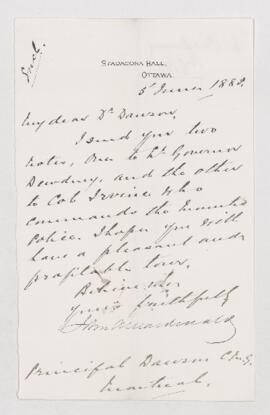 Encl.
STADACONA HALL,
OTTAWA.
5 June 1883.
My dear Dr Dawson,
I send you two
notes, One to Lt. Governor
Dewdney, and the other
to Col. Irvine who
commands the Mounted
Police. I hope you will
have a pleasant and
profitable tour.
Believe me
yours faithfully
John A Macdonald
Principal Dawson C.M.G.
Montreal.